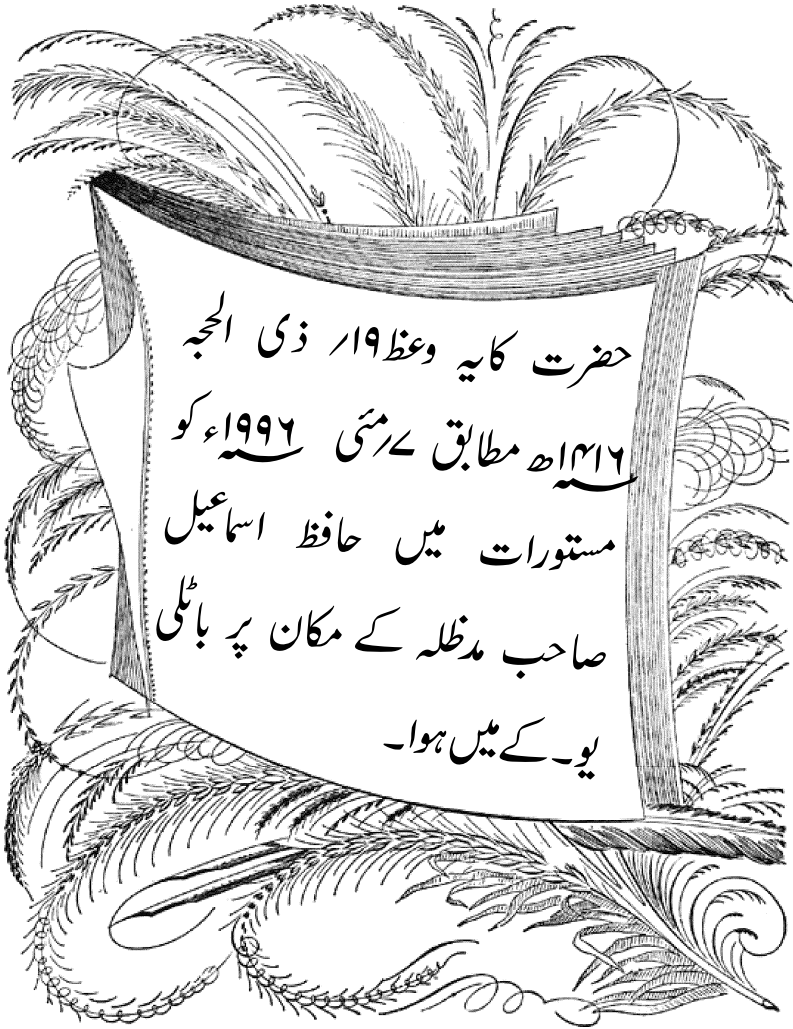 حضرت کا یہ وعظ ۱۹/ ذی الحجہ
۱۴۱۶ھ مطابق ۷/مئی ۱۹۹۶ء کو
مستورات میں حافظ اسماعیل
صاحب مدظلہ کے مکان پر باٹلی
یو۔ کے میں ہوا۔